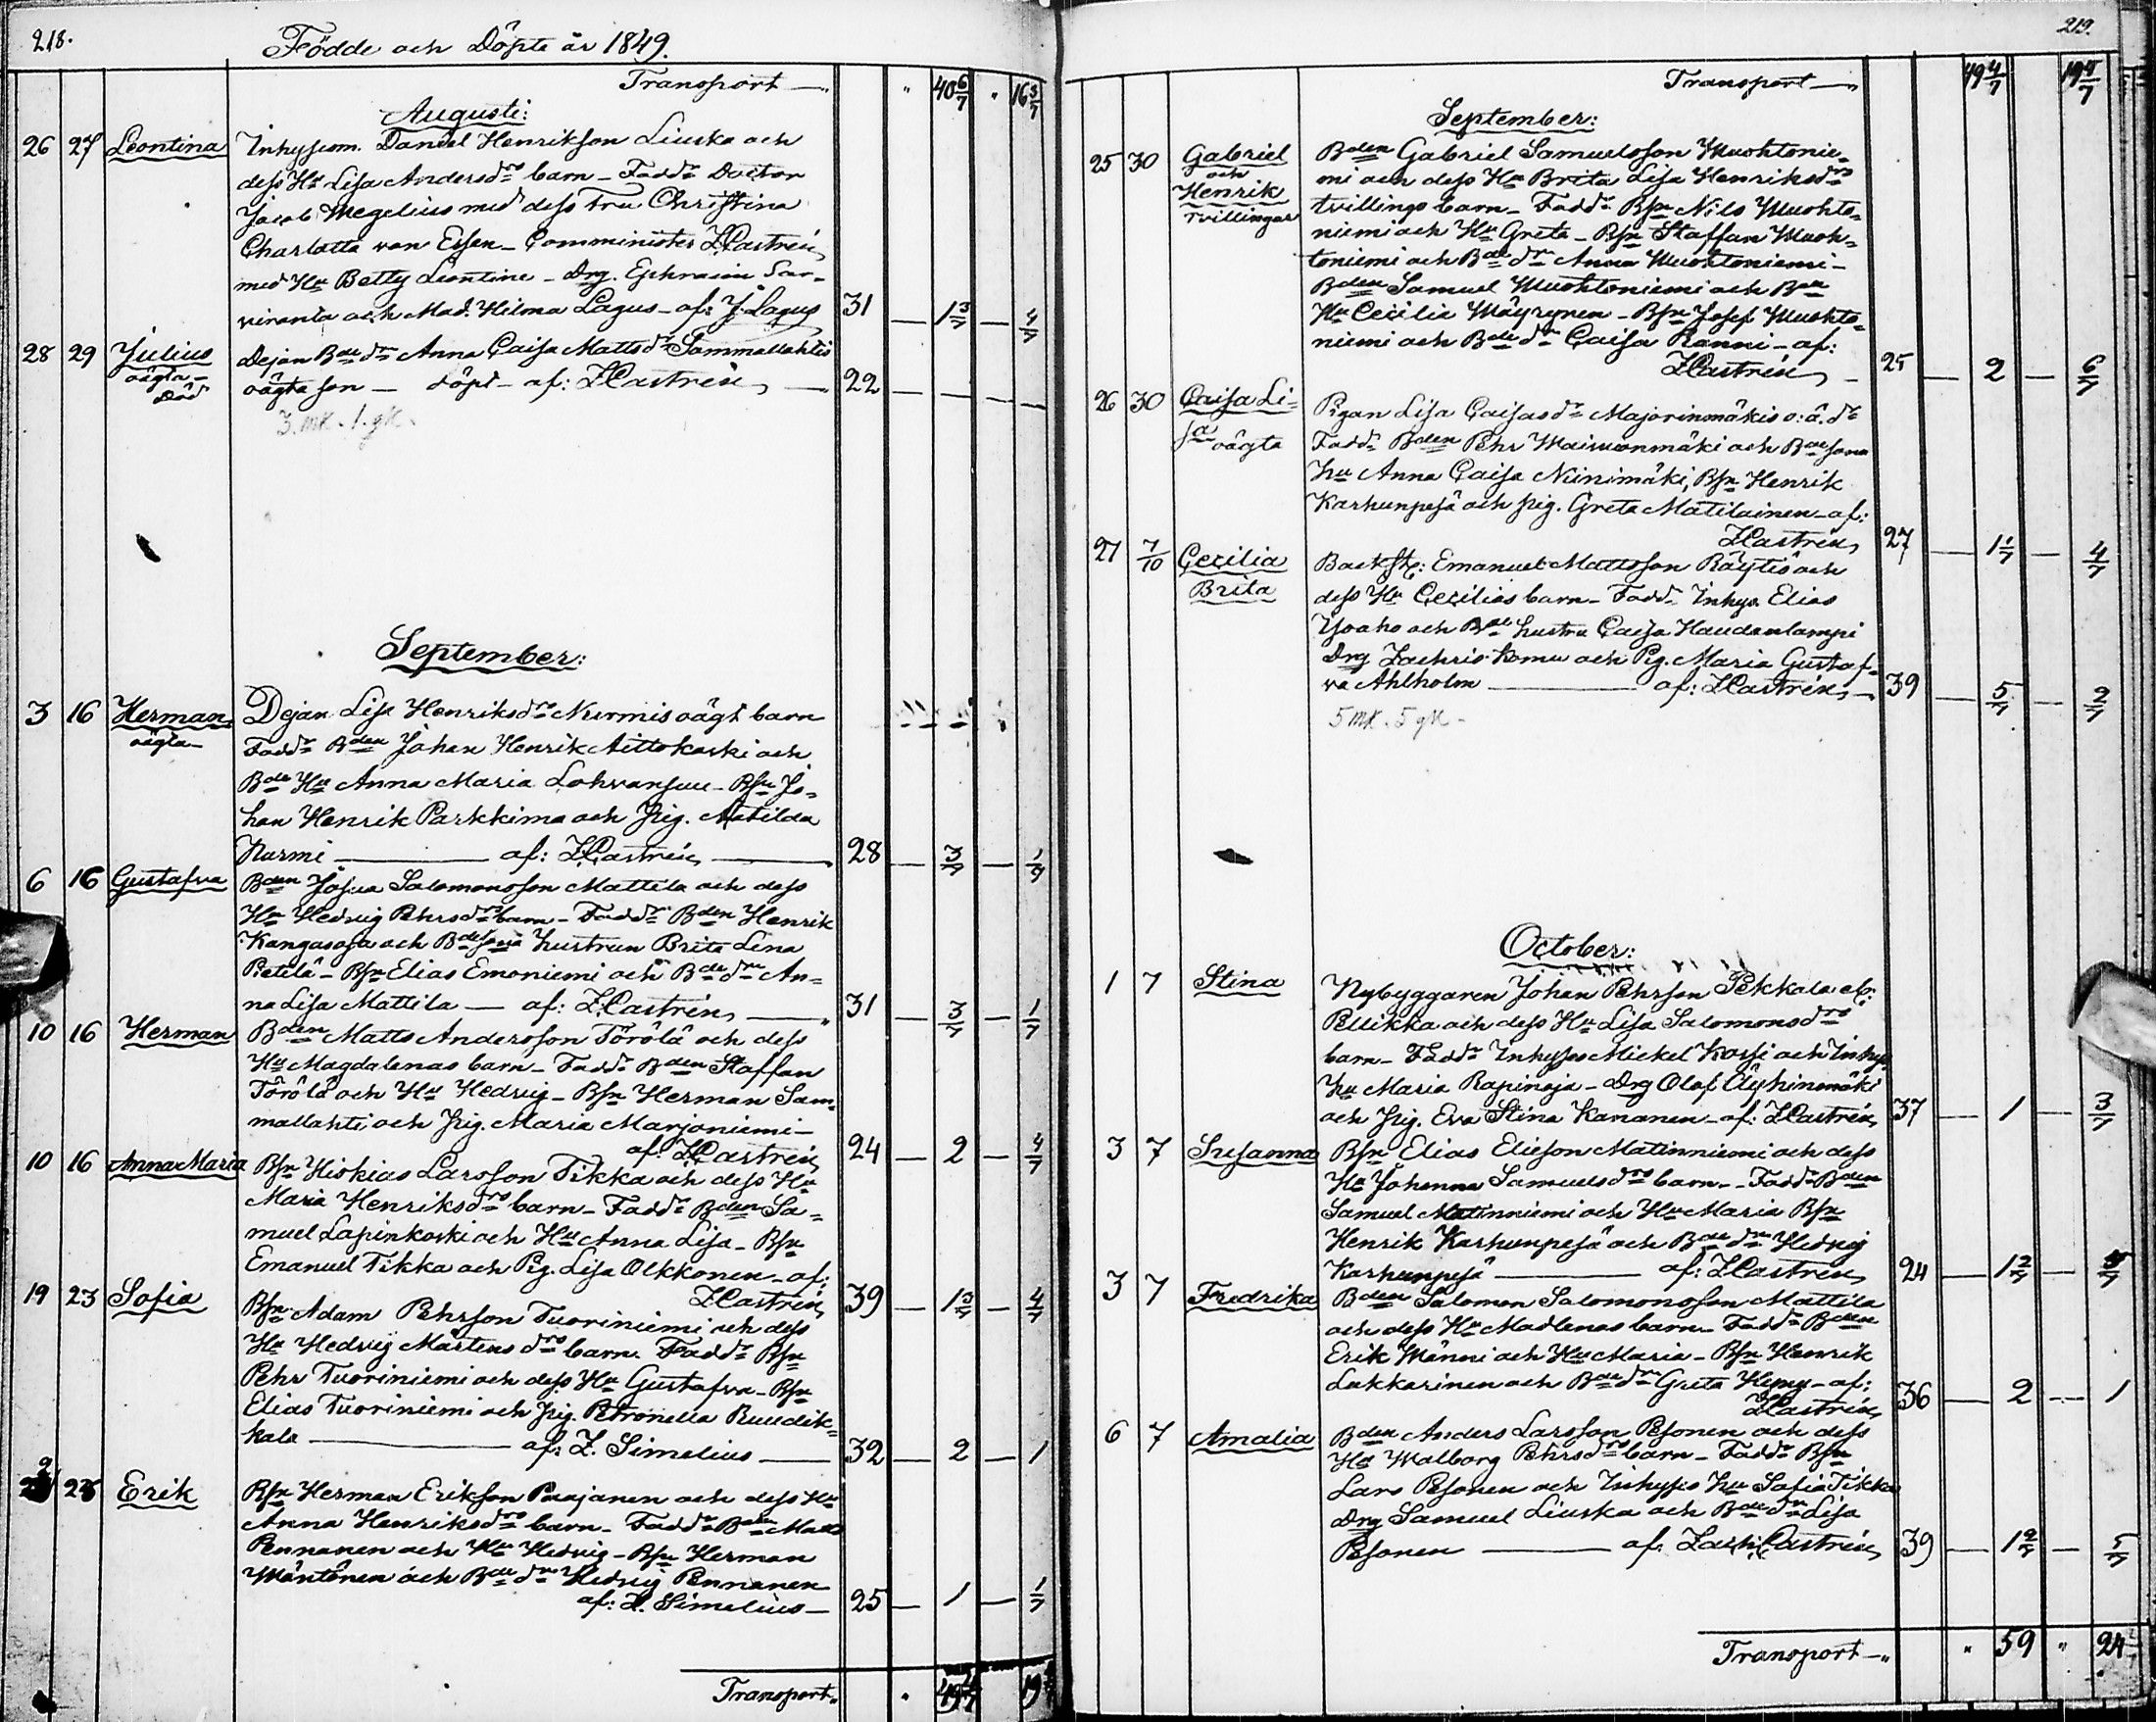 218.
Födde och Döpte år 1849.
Transport —
" 40 6/7 " 16 3/7
Augusti:
26 27 Leontina Inhysesm. Daniel Henriksson Liuska och
dess Hu Lisa Andersdrs barn – Faddr Doctor
Jacob Wegelius med dess Fru Christina
Charlotta von Essen – Comminister Z Castrén
med Hu Betty Leontine – Drg. Ephraim Sar-
viranta och Mad. Hilma Lagus – af: J. Lagus 31 — 1 3/7 — 4/7
28 29 Julius Dejan Bde dr Anna Caisa Mattsdr Sammallahtis
oägta – oägta son — döpt – af: Z Castrén — 22 — — — —
död
3. mk. 1. gk.
September:
3 16 Herman Dejan Lisa Henriksdr Nurmis oägt barn
oägta – Faddr Bden Johan Henrik Aittokoski och
Bde Hu Anna Maria Lohvansuu – Bsn Jo-
han Henrik Parkkima och Pig. Matilda
Nurmi — af: Z Castrén — 28 — 3/7 — 1/7
6 16 Gustafva Bden Josua Salomonsson Mattila och dess
Hu Hedvig Pehrsdrs barn – Faddr Bden Henrik
Kangasoja och Bdesons hustrun Brita Lena
Pietilä – Bsn Elias Emoniemi och Bde dr An-
na Lisa Mattila — af: Z Castrén — 31 — 3/7 — 1/7
10 16 Herman Bden Matts Andersson Törölä och dess
Hu Magdalenas barn – Faddr Bden Staffan
Törölä och Hu Hedvig – Bsn Herman Sam-
mallahti och Pig. Maria Marjoniemi –
af: Z Castrén 24 — 2 — 4/7
10 16 Anna Maria Bsn Hiskias Larsson Tikka och dess Hu
Maria Henriksdrs barn – Faddr Bden Sa-
muel Lapinkoski och Hu Anna Lisa – Bsn
Emanuel Tikka och Pig. Lisa Olkkonen – af:
Z Castrén 39 — 1 3/7 — 4/7
19 23 Sofia Bsn Adam Pehrsson Tuoriniemi och dess
Hu Hedvig Mårtens drs barn. Faddr Bsn
Pehr Tuoriniemi och dess Hu Gustafva – Bsn
Elias Tuoriniemi och Pig. Petronella Ruudik-
kala — af: Z. Simelius — 32 — 2 — 1
23 Erik Bsn Herman Eriksson Paajanen och dess Hu
Anna Henriksdrs barn – Faddr Bden Matts
Pennanen och Hu Hedvig – Bsn Herman
Mäntönen och Bde dr Hedvig Pennanen
af: Z. Simelius — 25 — 1 — 1/7
Transport " " 49 4/7 19
219.
Transport —
49 4/7 19 4/7
September:
25 30 Gabriel Bden Gabriel Samuelsson Muohtonie-
och mi och dess Hu Brita Lisa Henriksdrs
Henrik tvillings barn – Faddr Bsn Nils Muohto-
Tvillingar niemi och Hu Greta – Bsn Staffan Muoh-
toniemi och Bde dr Anna Muohtoniemi –
Bden Samuel Muohtoniemi och Bde
Hu Cecilia Mäyrynen – Bsn Josef Muohto-
niemi och Bde dr Caisa Ranni – af:
Z Castrén — 25 — 2 — 6/7
26 30 Caisa Li- Pigan Lisa Caisasdr Majorinmäkis o: ä. dr
sa oägta Faddr Bden Pehr Waiwonmäki och Bdesons
hu Anna Caisa Niinimäki, Bsn Henrik
Karhunpesä och Pig. Greta Matilainen – af:
Z Castrén 27 — 1 1/7 — 4/7
27 7/10 Cecilia Backst: Emanuel Mattsson Räytiö och
Brita dess Hu Cecilias barn – Faddr Inhys Elias
Yoaho och Bde hustru Caisa Haudanlampi
Drg Zachris Komu och Pig. Maria Gustaf-
va Ahlholm — af: Z Castrén 39 — 5/7 — 2/7
5 mk. 5 gk –
October:
1 7 Stina Nybyggaren Johan Pehrsson Pekkala el:
Pellikka och dess Hu Lisa Salomonsdrs
barn – Faddr Inhyses Mickel Kossi och Inhys
hu Maria Rapinoja – Drg Olof Äyhinmäki
och Pig. Eva Stina Kananen – af: Z Castrén 37 — 1 — 3/7
3 7 Susanna Bsn Elias Elieson Matinniemi och dess
Hu Johanna Samuelsdrs barn – Faddr Bden
Samuel Matinniemi och Hu Maria Bsn
Henrik Karhunpesä och Bde dr Hedvig
Karhunpesä — af: Z Castrén 24 — 1 2/7 — 5/7
3 7 Fredrika Bden Salomon Salomonsson Mattila
och dess Hu Madlenas barn – Faddr Bden
Erik Männi och Hu Maria – Bsn Henrik
Lukkarinen och Bde dr Greta Hyny – af:
Z Castrén 36 — 2 — 1
6 7 Amalia Bden Anders Larsson Pesonen och dess
Hu Walborg Pehrsdrs barn – Faddr Bsn
Lars Pesonen och Inhyses hu Sofia Tikka
Drg Samuel Liuska och Bde dr Lisa
Pesonen — af. Zach: Castrén 39 — 1 2/7 — 5/7
Transport — " " 59 " 24